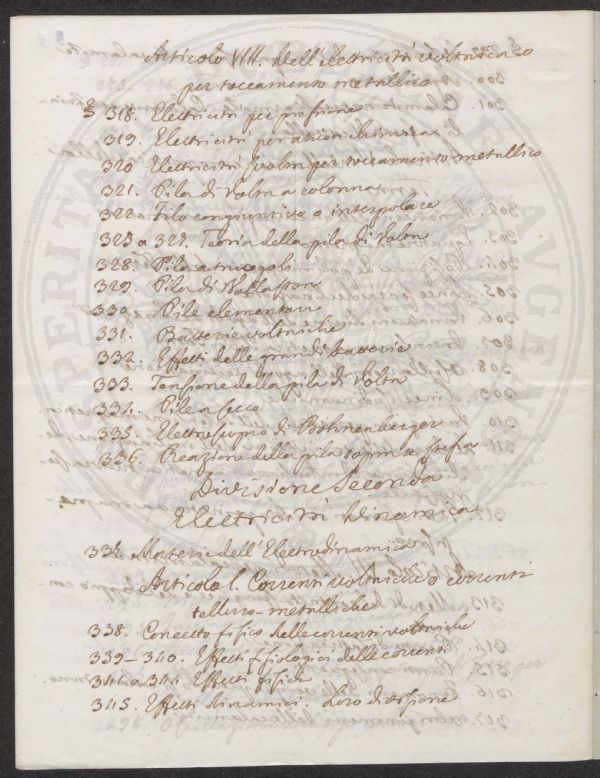 Articolo VIII. Dell'elettricità voltaica o
per toccamento metallico
§ 318. Elettricità per pressione
319. Elettricità per azioni chimica
320 Elettricità svolta per toccamento metallico
321. Pila di Volta a colonna
322 Filo congiuntivo o interpolare
323 a 327. Teoria della pila di Volta
328. Pila a truogoli
329. Pila di Wollaston
330. Pile elementari
331. Batterie voltaiche
332. Effetti delle grandi batterie
333. Tensione della pila di Volta
334. Pile a secco
335. Elettroscopio di Bohnenberger
336. Reazione della pila sopra se stessa
Divisione Seconda
Elettricità Dinamica
337. Materie dell'Elettrodinamica
Articolo I. Correnti voltaiche o correnti
metalliche
338. Concetto fisico delle correnti voltaiche
339-340. Effetti fisiologici delle correnti
341 a 344 Effetti fisici
345. Effetti dinamici. Loro divisione